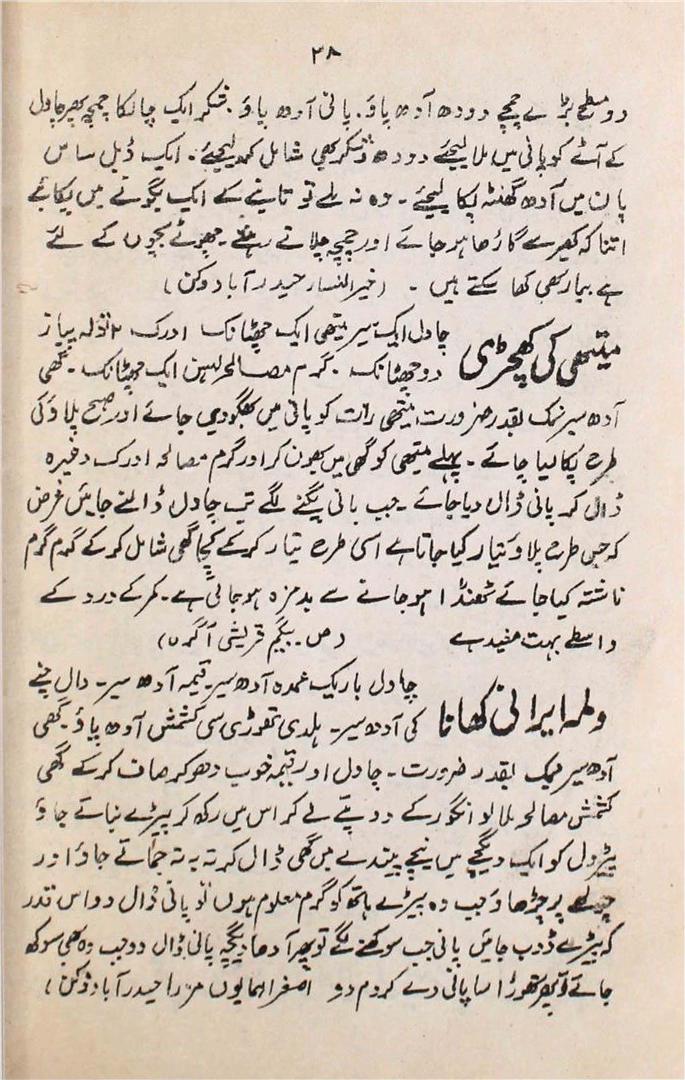 ۳۸
دو مسطح بڑے چمچے دودھ آدھ پاؤ۔ پانی آدھ پاؤ۔ شکر ایک چائکا چمچہ بھر چاول
کے آٹے کو پانی میں ملا لیجئے دودھ و شکر بھی شامل کر لیجئے۔ ایک ڈبل ساس
پان میں آدھ گھنٹہ پکا لیجئے۔ وہ نہ ملے تو تانبے کے ایک بگونے میں پکائیے
اتنا کہ کھیرے گاڑھا ہو جائے اور چمچہ چلاتے رہئے۔ چھوٹے بچوں کے لئے
ہے بیمار بھی کھا سکتے ہیں ۔ (خیر النسار حیدر آباد دکن)
میتھی کی کھچڑی
چاول ایک سیر میتھی ایک چھٹانک ادرک ۲ تولہ پیاز
دو چھٹانک ۔ گرم مصالحہ لہسن ایک چھٹانک ۔ گھی
آدھ سیر نمک بقدر ضرورت، میتھی رات کو پانی میں بھگو دی جائے اور صبح پلاؤ کی
طرح پکا لیا جائے ۔ پہلے میتھی کو گھی میں بھون کر اور گرم مصالحہ ادرک وغیرہ
ڈال کر پانی ڈال دیا جائے ۔ جب پانی پکنے لگے تب چاول ڈالے جایئں غرض
کہ جس طرح پلاؤ تیار کیا جاتا ہے اسی طرح تیار کر کے کچا گھی شامل کر کے گرم گرم
ناشتہ کیا جائے ٹھنڈا ہو جانے سے بدمزہ ہو جاتی ہے۔ کمر کے درد کے
واسطے بہت مفید ہے (ص۔ بیگم قریشی آگرہ)
ولمہ ایرانی کھانا
چاول باریک عمدہ آدھ سیر۔ قیمہ آدھ سیر۔ دال چنے
کی آدھ سیر۔ ہلدی تھوڑی سی کشمش آدھ پاؤ۔ گھی
آدھ سیر نمک بقدر ضرورت ۔ چاول اور قیمہ خوب دھو کر صاف کر کے گھی
کشمش مصالحہ ملا لو انگور کے دو پتے لے کر اس میں رکھ کر پیڑے بناتے جاؤ
پیڑوں کو ایک دیگچے میں نیچے پیندے میں گھی ڈال کر تہ بہ تہ جماتے جاؤ اور
چولہے پر چڑھاؤ جب وہ پیڑے ہاتھ کو گرم معلوم ہوں تو پانی ڈال دو اس قدر
کہ پیڑے ڈوب جایئں پانی جب سوکھنے لگے تو پھر آدھا دیگچہ پانی ڈال دو جب وہ بھی سوکھ
جائے تو پھر تھوڑا سا پانی دے کر دم دو اصغرا ہمایوں مرزا حیدر آباد دکن)